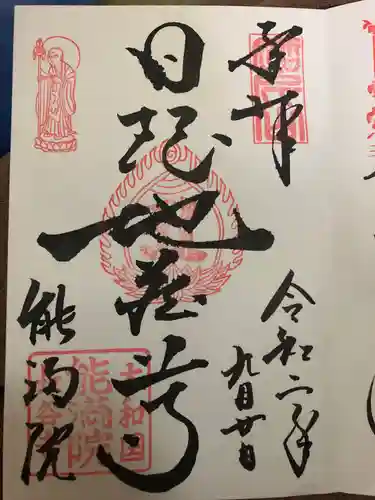 奉拝
令和二年
九月廿日
日限地蔵尊
能満院
大和国
能満院